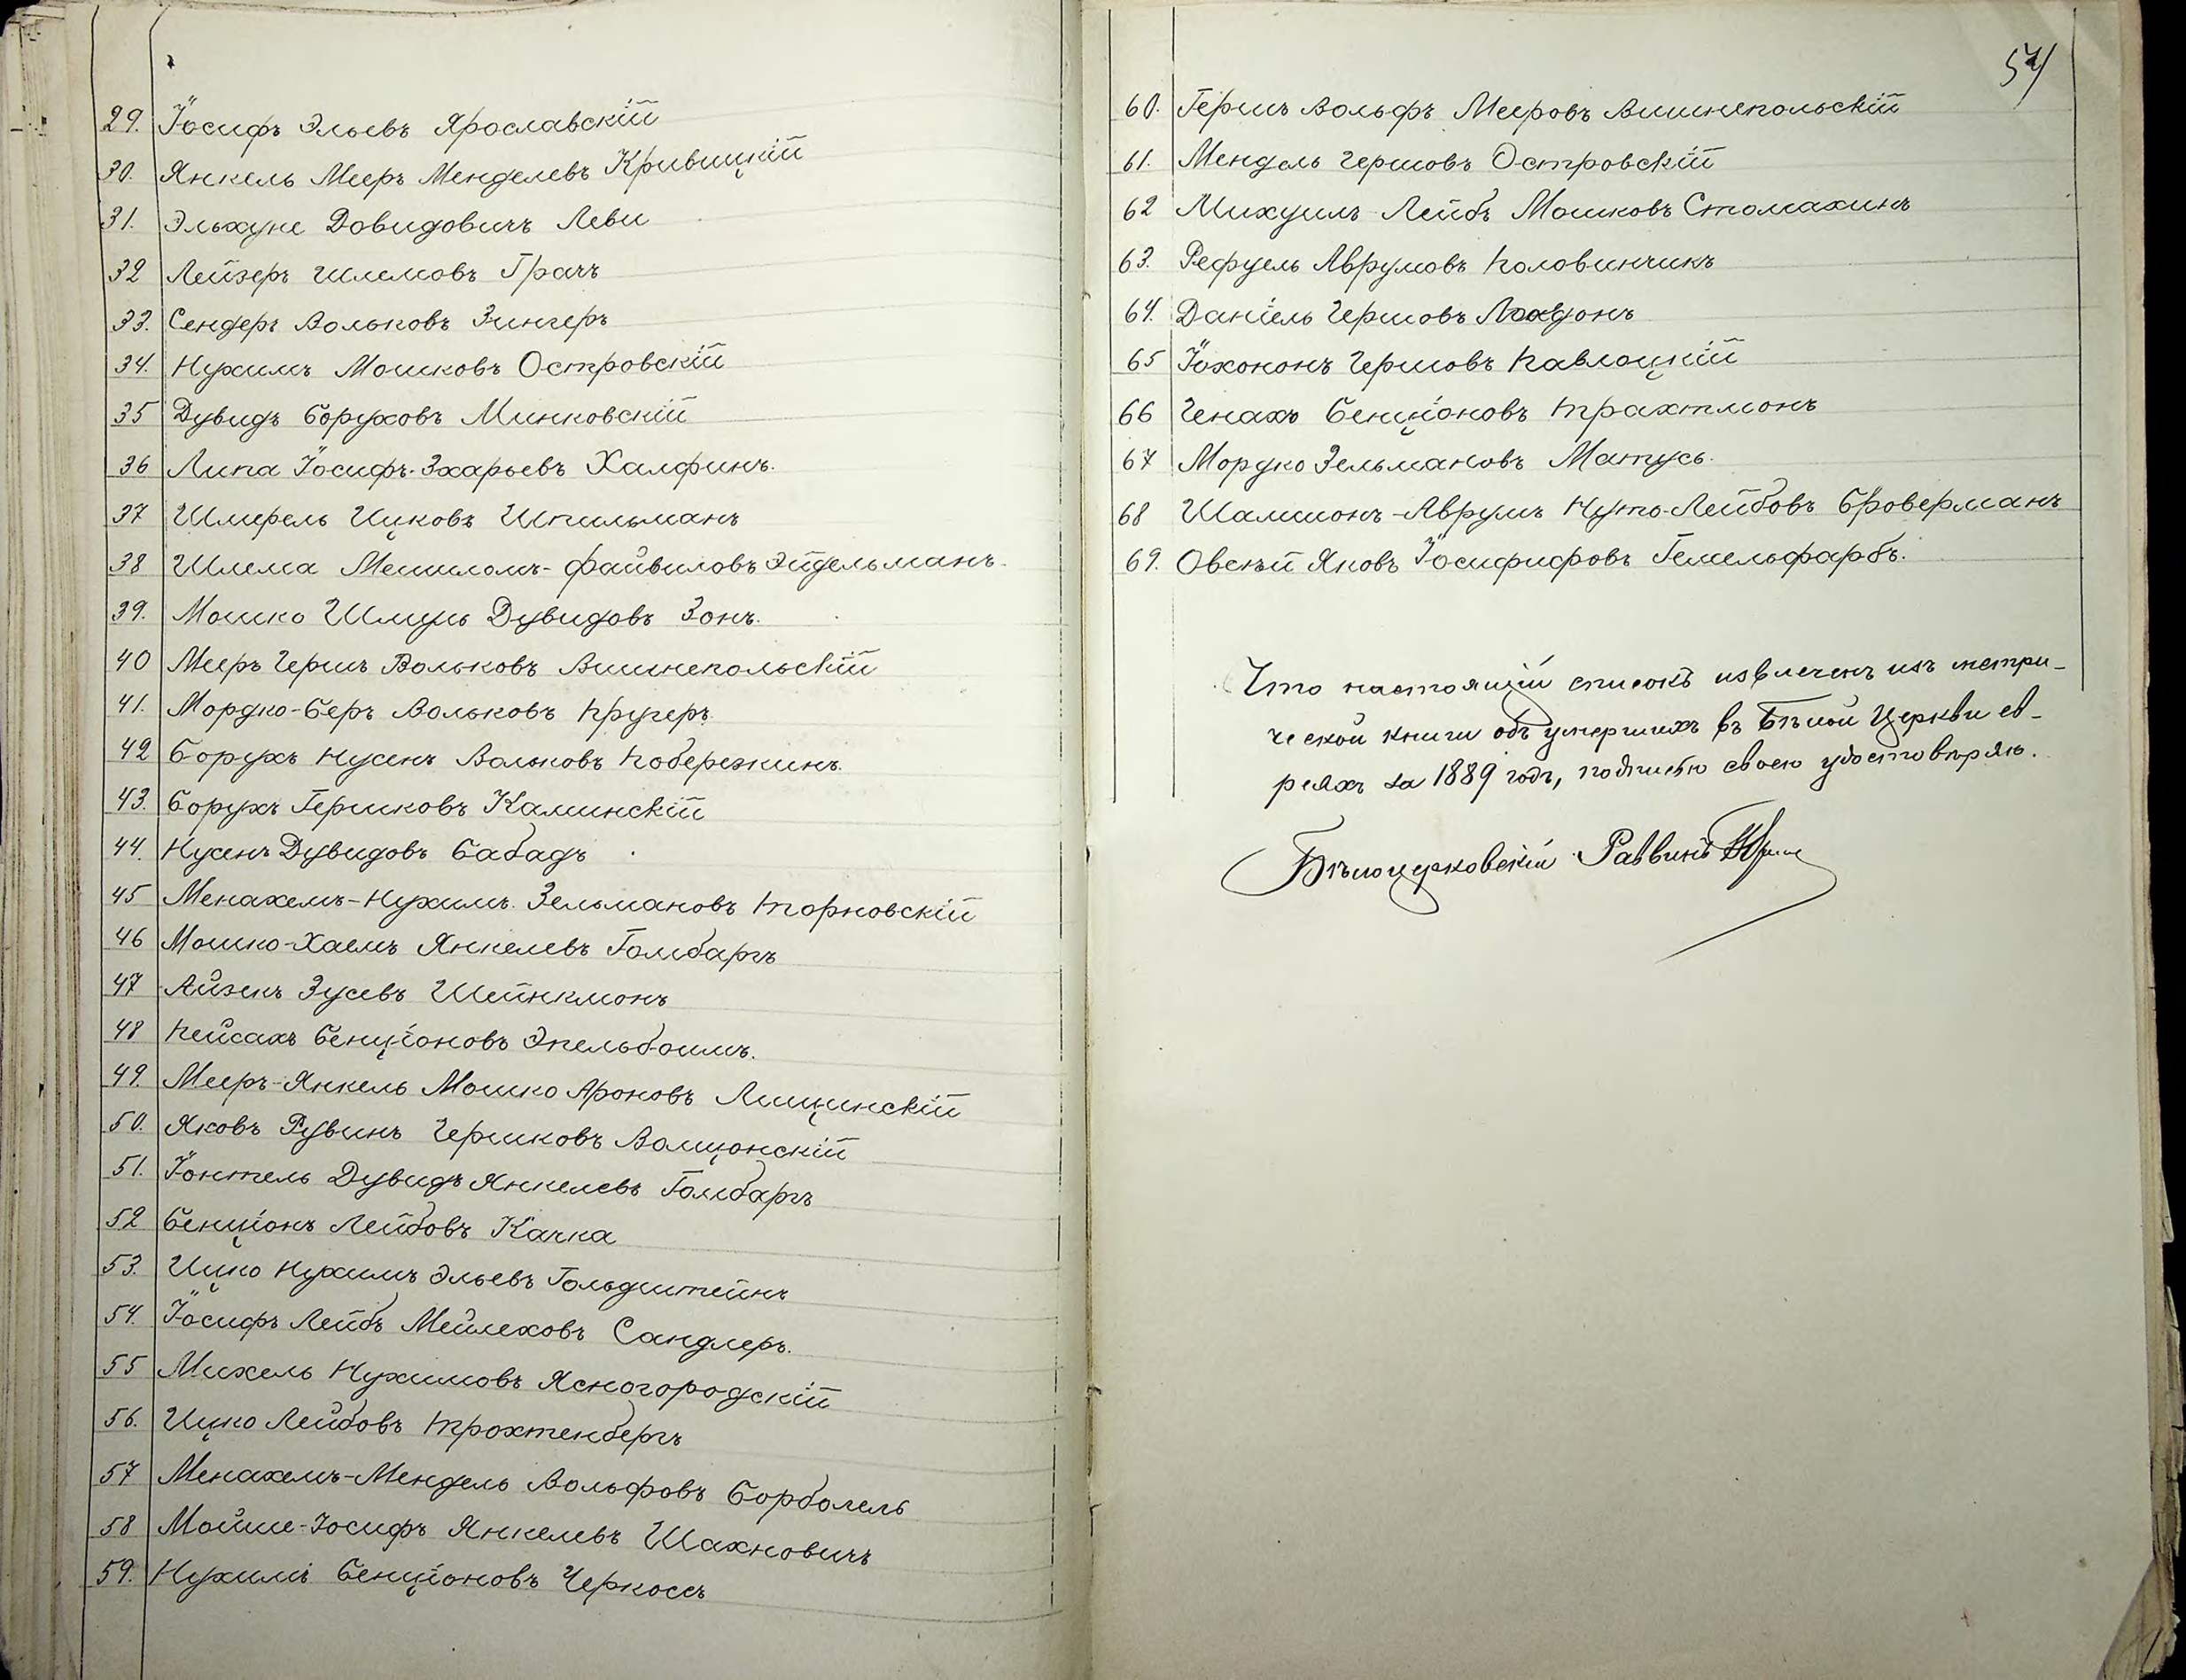 29. Іосифъ Эльевъ Ярославскій
30. Янкель Мееръ Менделевъ Кривицкій
31. Эльхуне Довидовичъ Леви
32 Лейзеръ Шлемовъ Грачъ
33. Сендеръ Вольковъ Зингеръ
34. Нухимъ Мошковъ Островскій
35 Дувидъ Боруховъ Минковскій
36 Липа Іосифъ-Зхарьевъ Халфинъ.
37 Шмерель Ицковъ Шпильманъ
38 Шлема Мешиломъ-Файвиловъ Эйдельманъ.
39. Мошко Шмуль Дувидовъ Зонъ.
40 Мееръ Гершъ Вольковъ Вишнепольскій
41. Мордко-Беръ Вольковъ Кругеръ.
42 Борухъ Нусенъ Вольковъ Побережкинъ.
43. Борухъ Гершковъ Каминскій
44. Нусенъ Дувидовъ Бабадъ
45 Менахемъ-Нухимъ Зельмановъ Торновскій
46 Мошко-Хаемъ Янкелевъ Гомбаргъ
47 Айзекъ Зусевъ Шейнкмонъ
48 Пейсахъ Бенціоновъ Эпельбоимъ.
49. Мееръ-Янкель Мошко Ароновъ Лищинскій
50. Яковъ Рувинъ Гершковъ Волщонскій
51. Іонтель Дувидъ Янкелевъ Гомбаргъ
52 Бенціонъ Лейбовъ Качка
53. Ицко Нухимъ Эльевъ Гольдштейнъ
54. Іосифъ Лейбъ Мейлеховъ Сандлеръ.
55 Михель Нухимовъ Ясногородскій
56. Ицко Лейбовъ Трохтенбергъ
57 Менахемъ-Мендель Вольфовъ Борболель
58 Мойше-Іосифъ Янкелевъ Шахновичъ
59. Нухимъ Бенціоновъ Черкосъ
60. Гершъ Вольфъ Мееровъ Вишнепольскій
61. Мендель Гершовъ Островскій
62 Михуиль-Лейбъ Мошковъ Стомахинъ
63. Рефуель Аврумовъ Половинчикъ
64. Даніель Гершовъ
65 Іохононъ Гершовъ Павлоцкій
66 Генахъ Бенціоновъ Трахтмонъ
67 Мордко Зельмановъ Матусь.
68 Шамшонъ-Аврумъ Нуто-Лейбовъ Броверманъ
69. Овсѣй Яковъ Іосифифровъ Гемельфарбъ.
Что настоящій списокъ извлеченъ изъ метри-
ческой книги объ умершихъ въ Бѣлой Церкви ев-
реяхъ за 1889 годъ, подписью своею удостовѣряю.
Бѣлоцерковскій Раввинъ